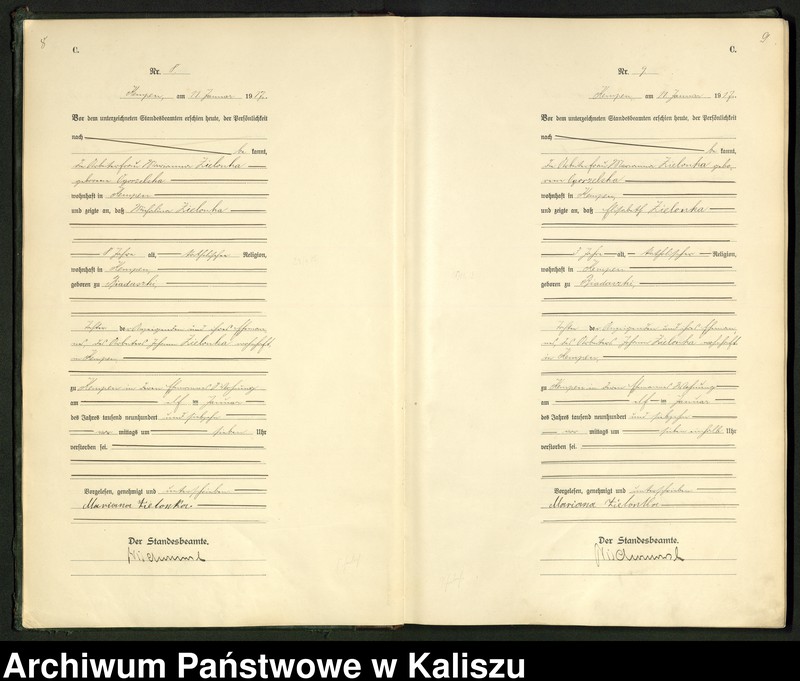 8
C.
Nr. 8
Kempen, am 11. Januar 1917.
Vor dem unterzeichneten Standesbeamten erschien heute, der Persönlichkeit
nach
be kannt,
die Arbeiterfrau Marianna Zielonka
geborene
wohnhaft in Kempen
und zeigte an, daß Zielonka
8 Jahre alt, katholischer Religion,
wohnhaft in Kempen,
geboren zu
Tochter der Anzeigenden und ihres Ehemannes,
des Arbeiters Johann Zielonka wohnhaft
in Kempen,
zu Kempen in ihres Ehemannes Wohnung
am elf ten Januar
des Jahres tausend neunhundert und siebzehn
vor mittags um sieben Uhr
verstorben sei.
Vorgelesen, genehmigt und unterschrieben
Marianna Zielonka.
Der Standesbeamte.
9
C.
Nr. 9
Kempen, am 11. Januar 1917.
Vor dem unterzeichneten Standesbeamten erschien heute, der Persönlichkeit
nach
be kannt,
die Arbeiterfrau Marianna Zielonka gebo-
rene
wohnhaft in Kempen,
und zeigte an, daß Elisabeth Zielonka
Jahre alt, katholischer Religion,
wohnhaft in Kempen
geboren zu
Tochter der Anzeigenden und ihres Ehemannes,
des Arbeiters Johann Zielonka wohnhaft
in Kempen,
zu Kempen in ihres Ehemannes Wohnung
am elf ten Januar
des Jahres tausend neunhundert und siebzehn
vor mittags um sieben einhalb Uhr
verstorben sei.
Vorgelesen, genehmigt und unterschrieben
Mariana Zielonka
Der Standesbeamte.
Archiwum Państwowe w Kaliszu